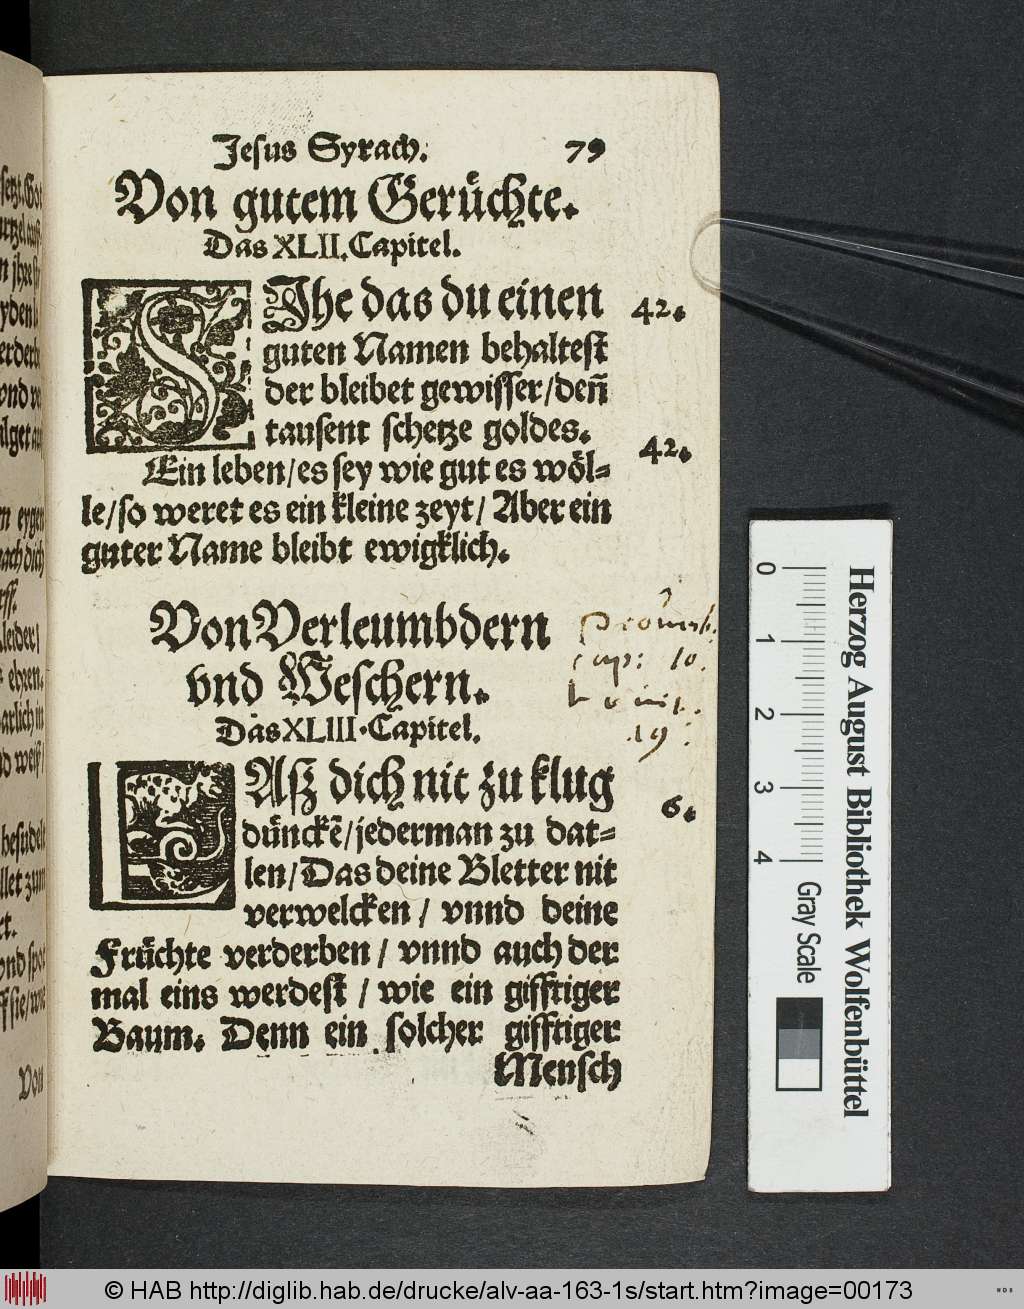 Jesus Syrach. 79
Von gutem Gerüchte.
Das XLII. Capitel.
SIhe das du einen 42.
guten Namen behaltest
der bleibet gewisser/deñ
tausent schetze goldes.
Ein leben/es sey wie gut es wöl= 42.
le/so weret es ein kleine zeyt/ Aber ein
guter Name bleibt ewigklich.
Von Verleumbdern
vnd Weschern.
cap: 10.
Das XLIII. Capitel.
19.
LAsz dich nit zu klug
dünckẽ/jederman zu dat= 6.
len/Das deine Bletter nit
verwelcken / vnnd deine
Früchte verderben / vnnd auch der
mal eins werdest / wie ein gifftiger
Baum. Denn ein solcher gifftiger
Mensch
Von
0 1 2 3 4
Gray Scale
Herzog August Bibliothek Wolfenbüttel
© HAB http://diglib.hab.de/drucke/alv-aa-163-1s/start.htm?image=00173